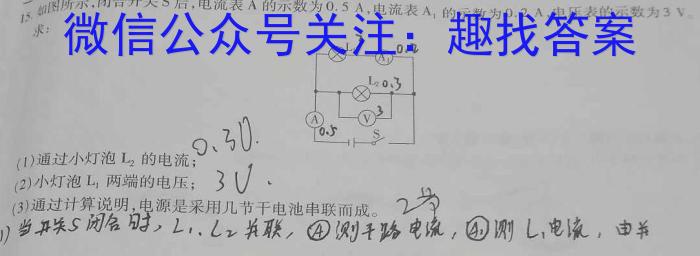 15. 如图所示,闭合开关S后,电流表A的示数为0.5A,电流表A₁的示数为0.2A,电压表的示数为3V。
求:
微信公众号关注:趣找答案
A₁
L₂ 0.3
V 3
A
0.5
S
0.3
(1)通过小灯泡L₂的电流;
(2)小灯泡L₁两端的电压; 3V.
(3)通过计算说明,电源是采用几节干电池串联而成。 2节
1)当开关S闭合时,L₁、L₂并联,Ⓐ测干路电流,Ⓐ₁测L₁电流,由并